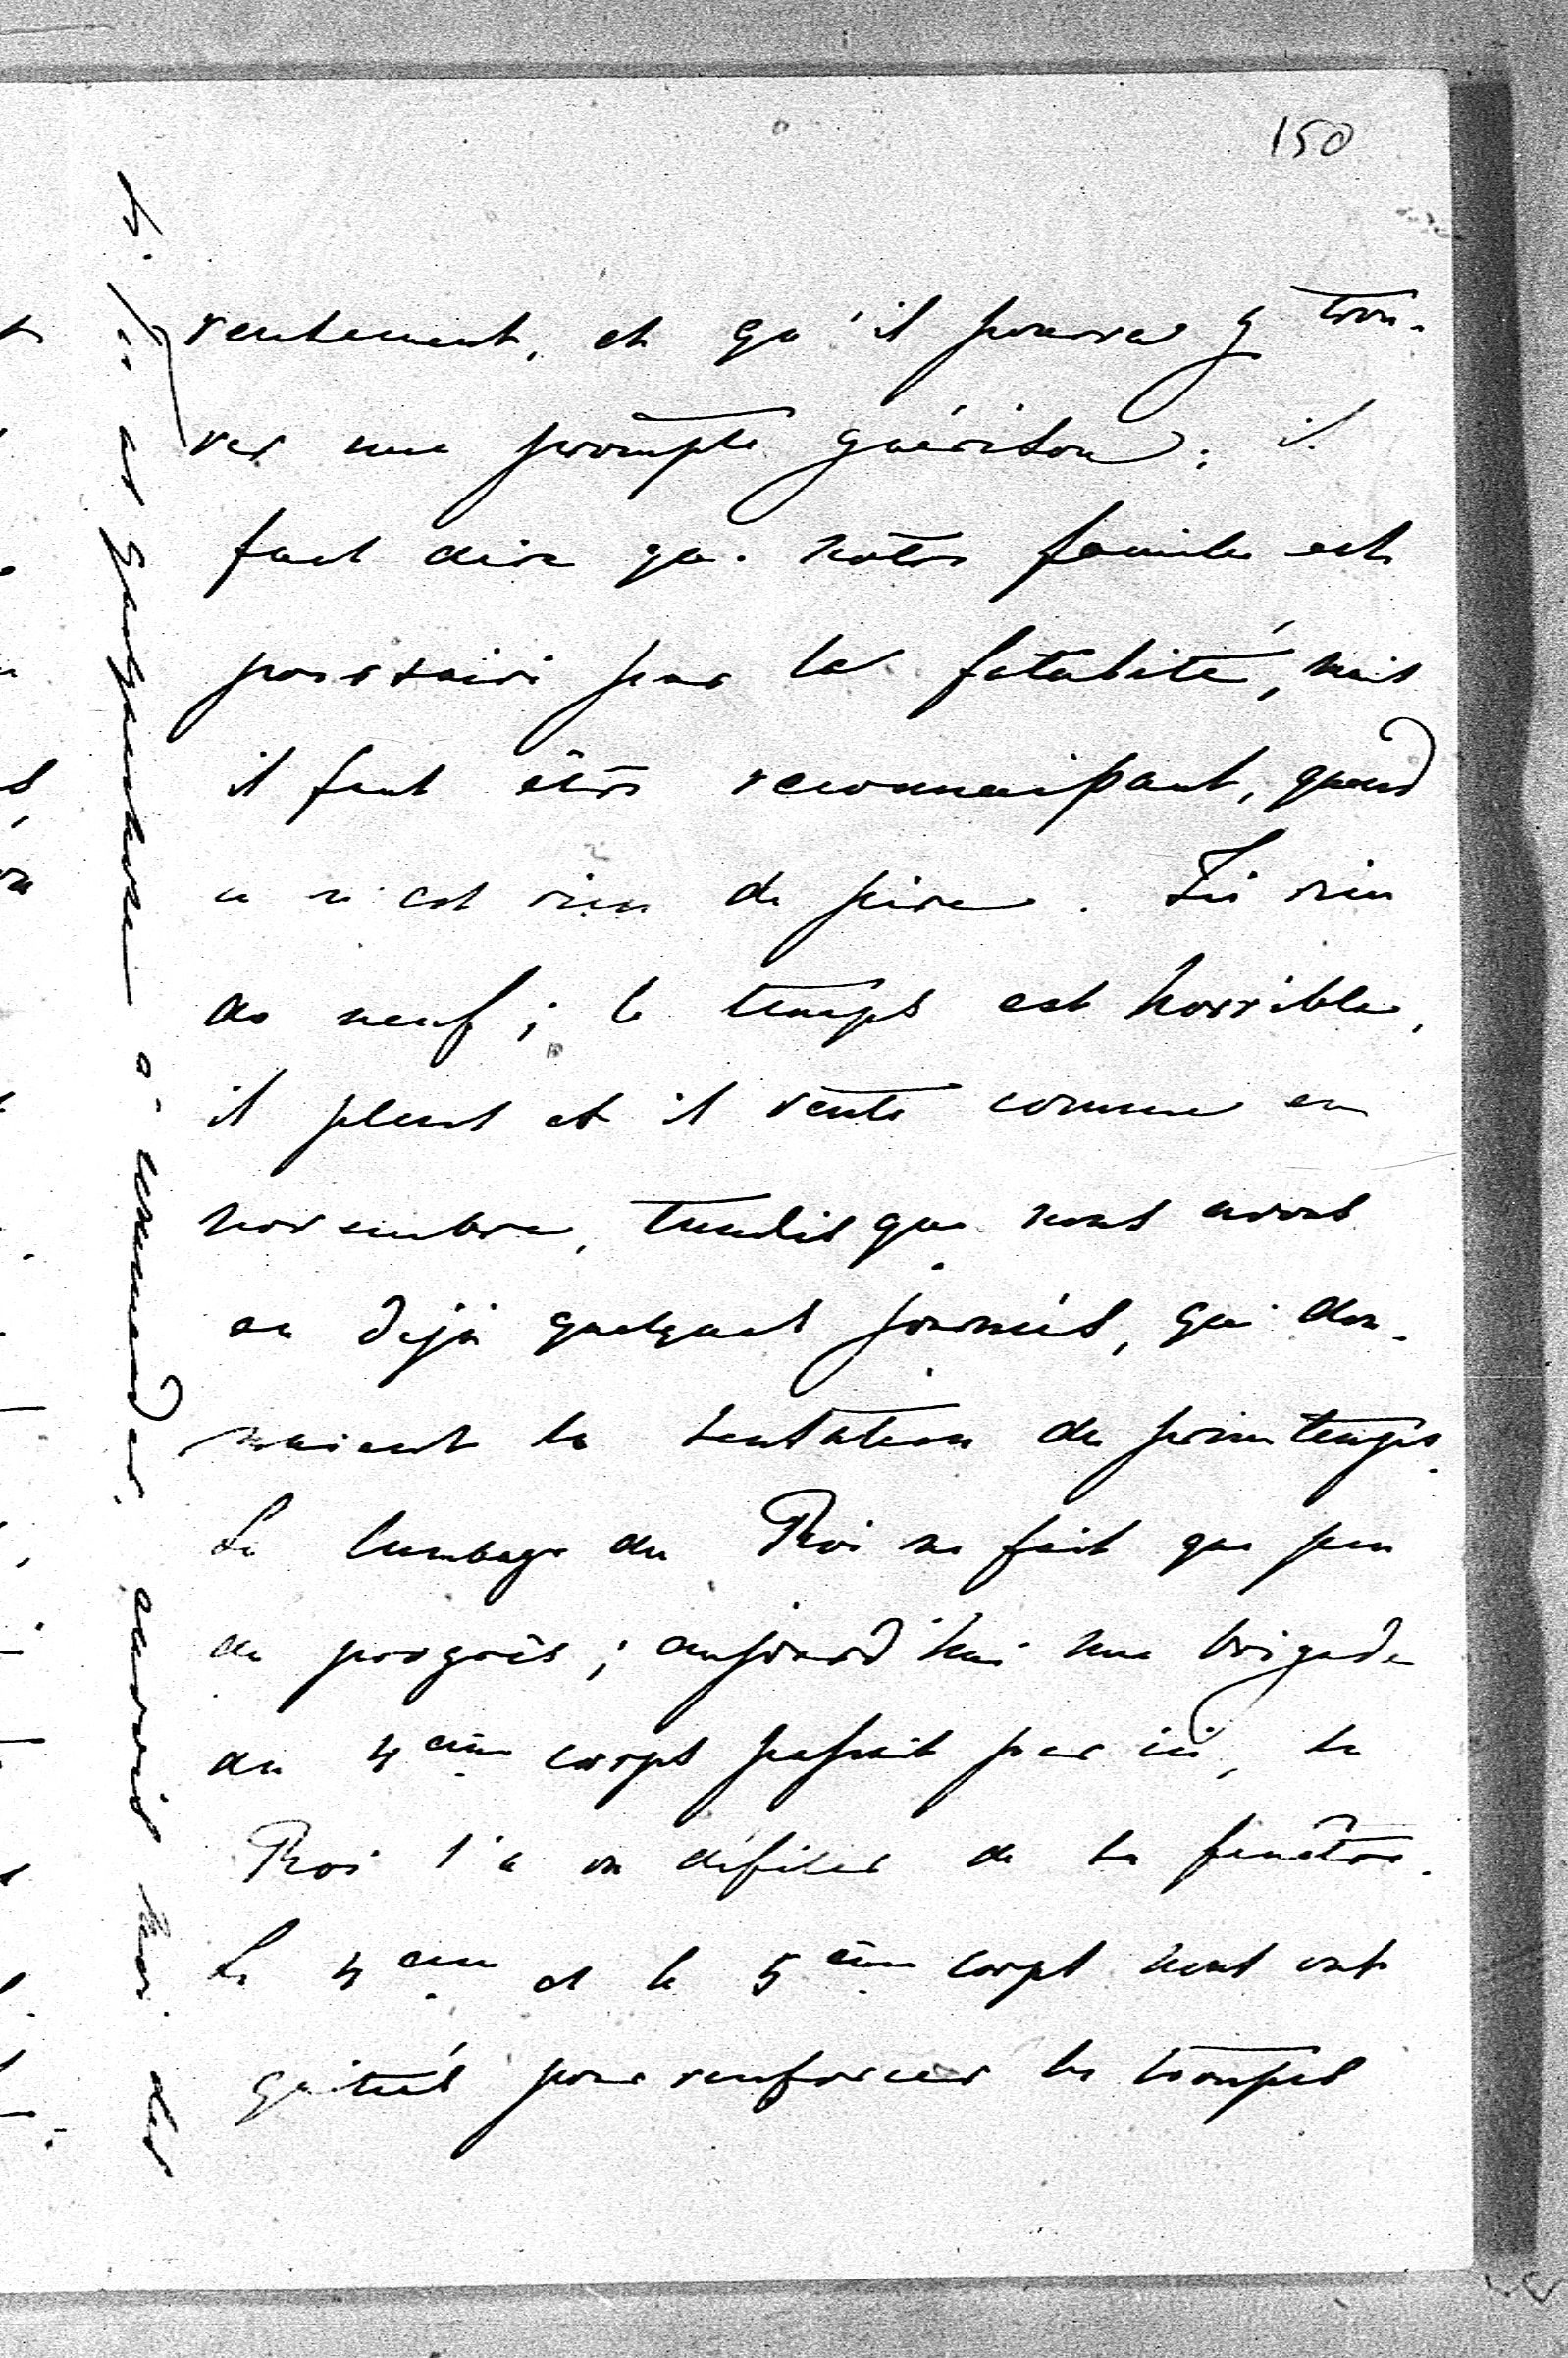 150
ventement, et qu'il pourra y trou-
ver une prompte guérison; il
faut dire que notre famille est
poursuivi par la fatalité, mais
il faut être reconnaissant, quand
ce n'est rien de pire. Ici rien
de neuf; le temps est horrible,
il pleut et il vente comme en
novembre, tandis que nous avons
eu déjà quelques journées, qui don-
naient la sensation du printemps.
Le lumbago du Roi ne fait que peu
de progrès; aujourd'hui une brigade
du 4ème corps passait par ici, le
Roi l'a vu défiler de la fenêtre.
Le 4ème et le 5ème corps nous ont
quittés pour renforcer les troupes
et quelque chose à commander, alors